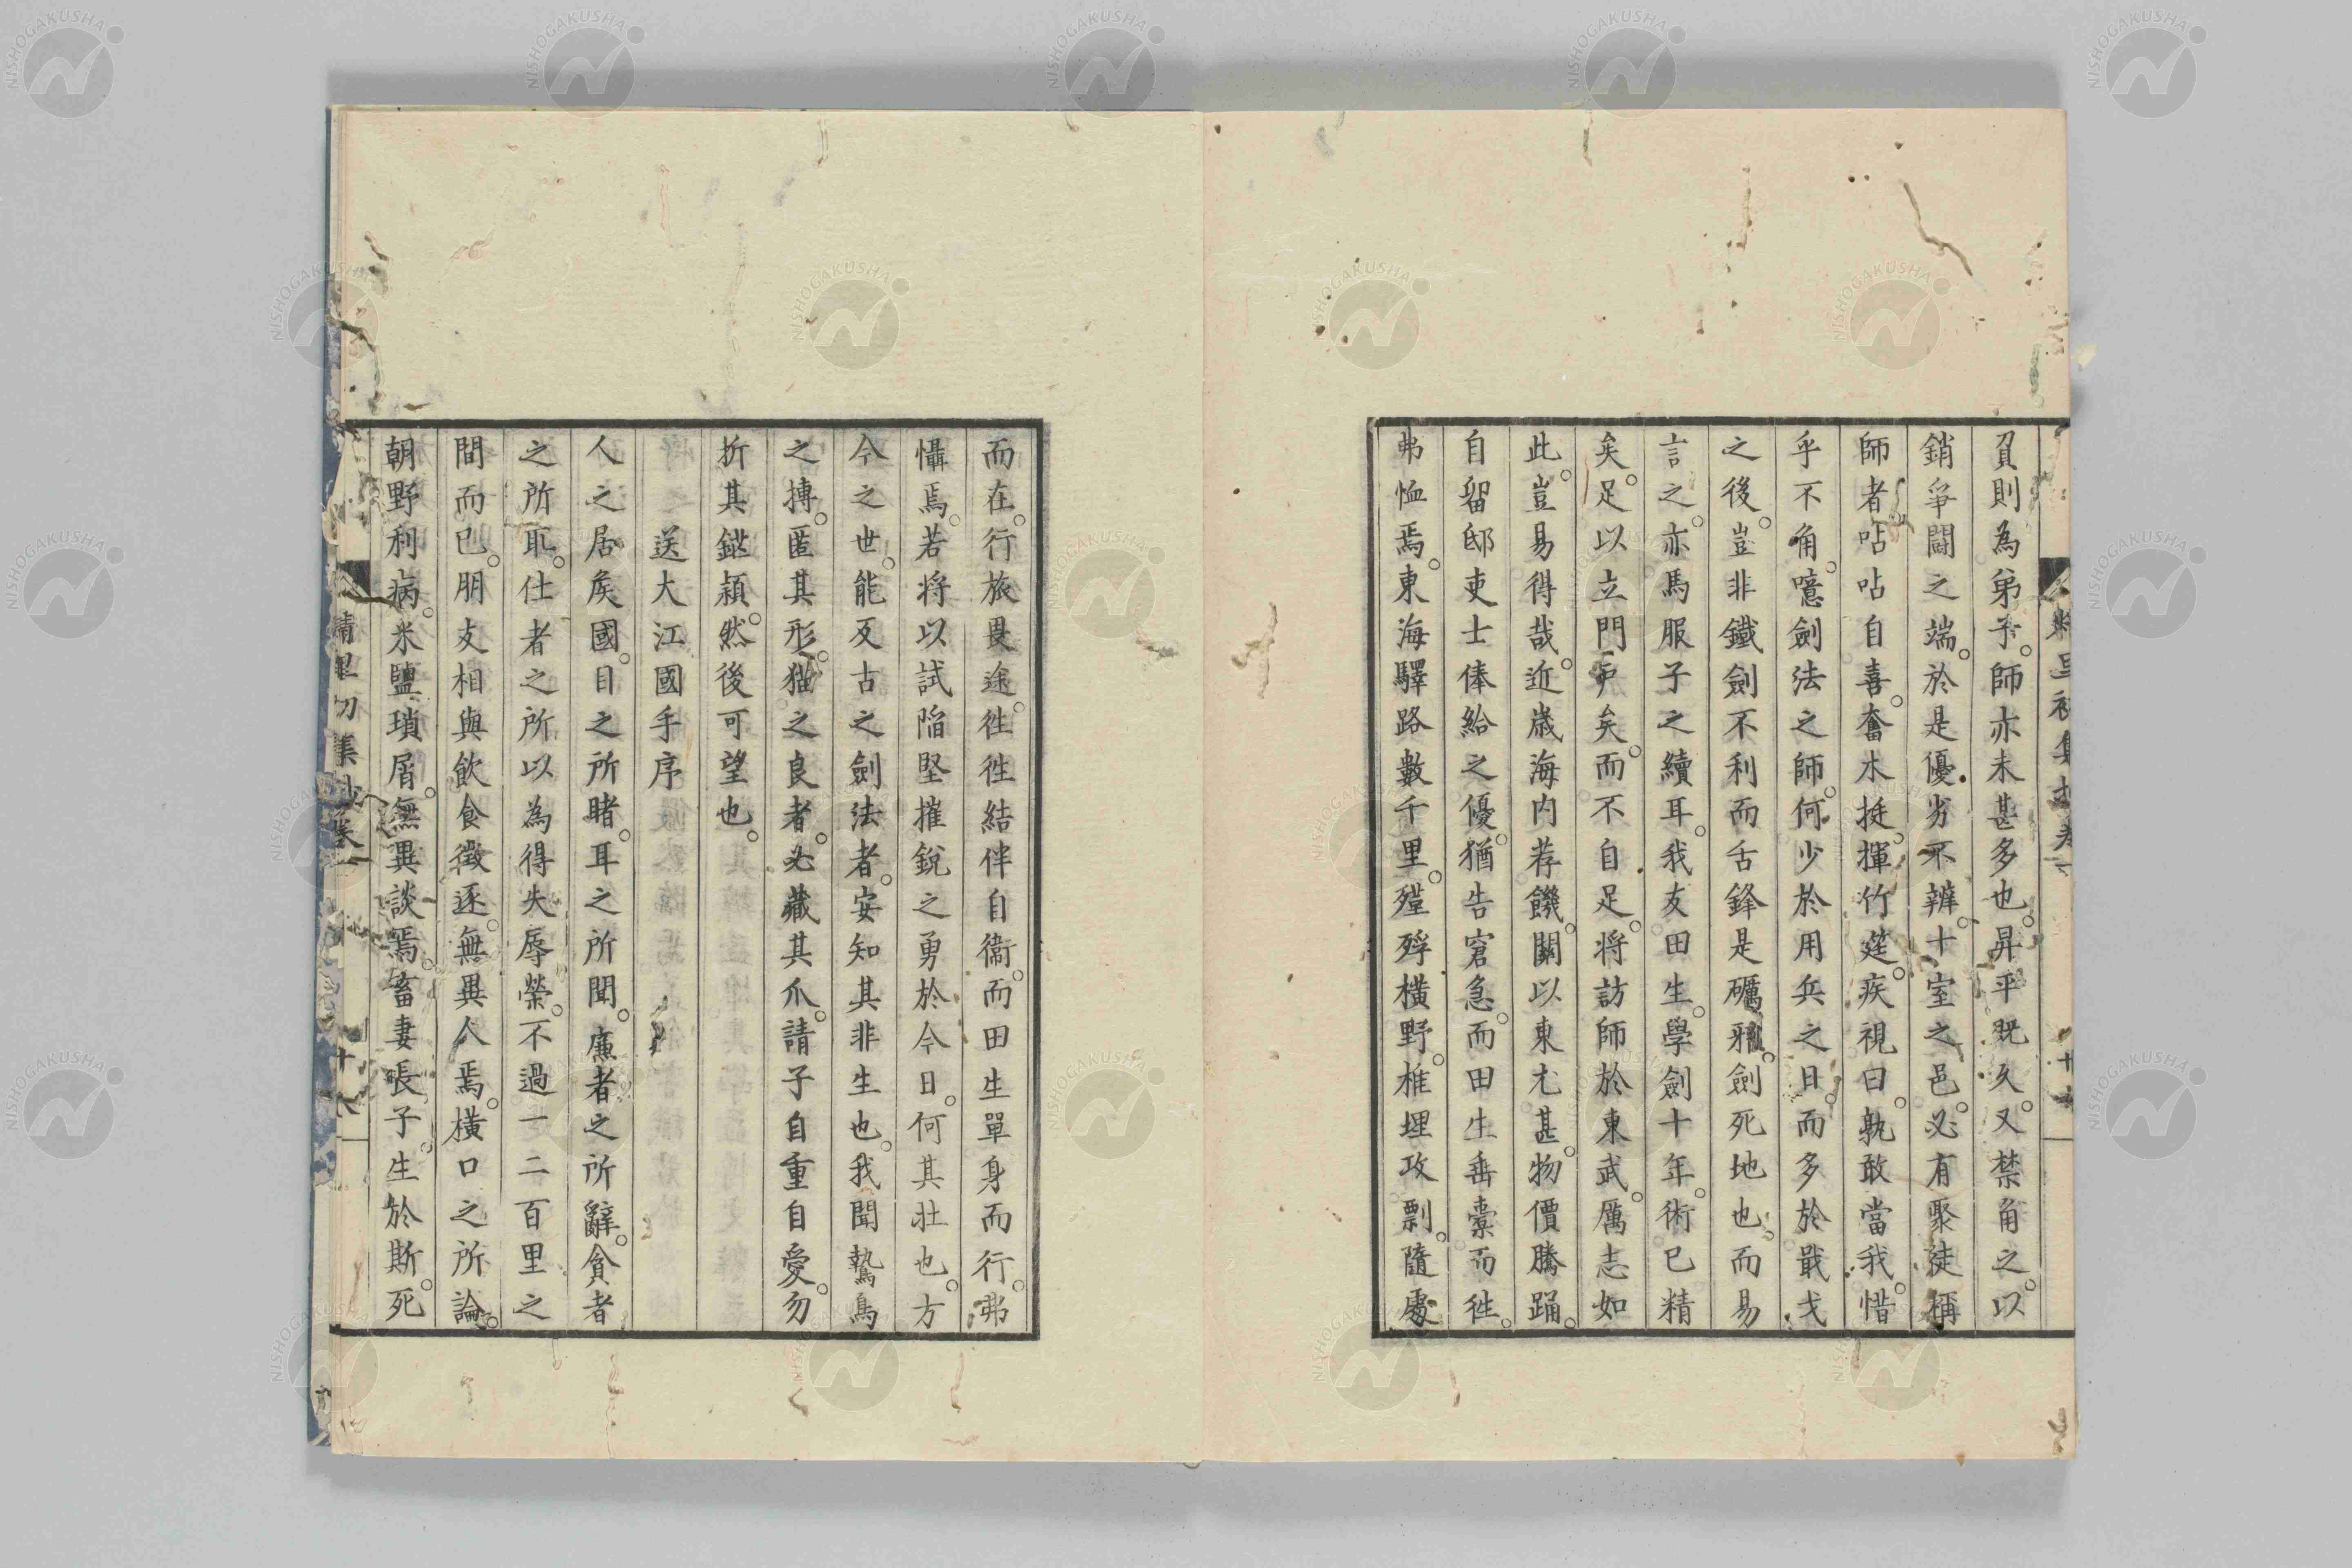 負則為弟子。師亦未甚多也。昇平既久。又禁角之。以
銷爭鬪之端。於是優劣不辨。十室之邑。必有聚徒稱
師者呫呫自喜。奮木挺。揮竹筳。疾視曰。孰敢當我。惜
乎不角。噫劍法之師。何少於用兵之日。而多於戢戈
之後。豈非鐵劍不利而舌鋒是礪雅。劍死地也。而易
言之。亦馬服子之續耳。我友田生。學劍十年。術已精
矣。足以立門戶矣。而不自足。將訪師於東武。厲志如
此。豈易得哉。近歲海內荐饑。關以東尤甚。物價騰踊。
自留邸吏士俸給之優。猶告窘急。而田生垂橐而徃。
弗恤焉。東海驛路數千里。殣殍橫野。椎埋攻剽。隨處
而在。行旅畏途。徃徃結伴自衞。而田生單身而行。弗
懾焉。若将以試陷堅摧銳之勇於今日。何其壯也。方
今之世。能及古之劍法者。安知其非生也。我聞鷙鳥
之搏。匿其形。猫之良者。必藏其爪。請子自重自愛。勿
折其鋩穎。然後可望也。
送大江國手序
人之居矦國。目之所睹。耳之所聞。廉者之所辭。貪者
之所耻。仕者之所以為得失辱榮。不過一二百里之
間而已。朋友相與飲食徵逐。無異人焉。橫口之所論。
朝野利病。米鹽瑣屑。無異談焉。畜妻長子。生於斯。死
精里初集抄卷一
NISHOGAKUSHA